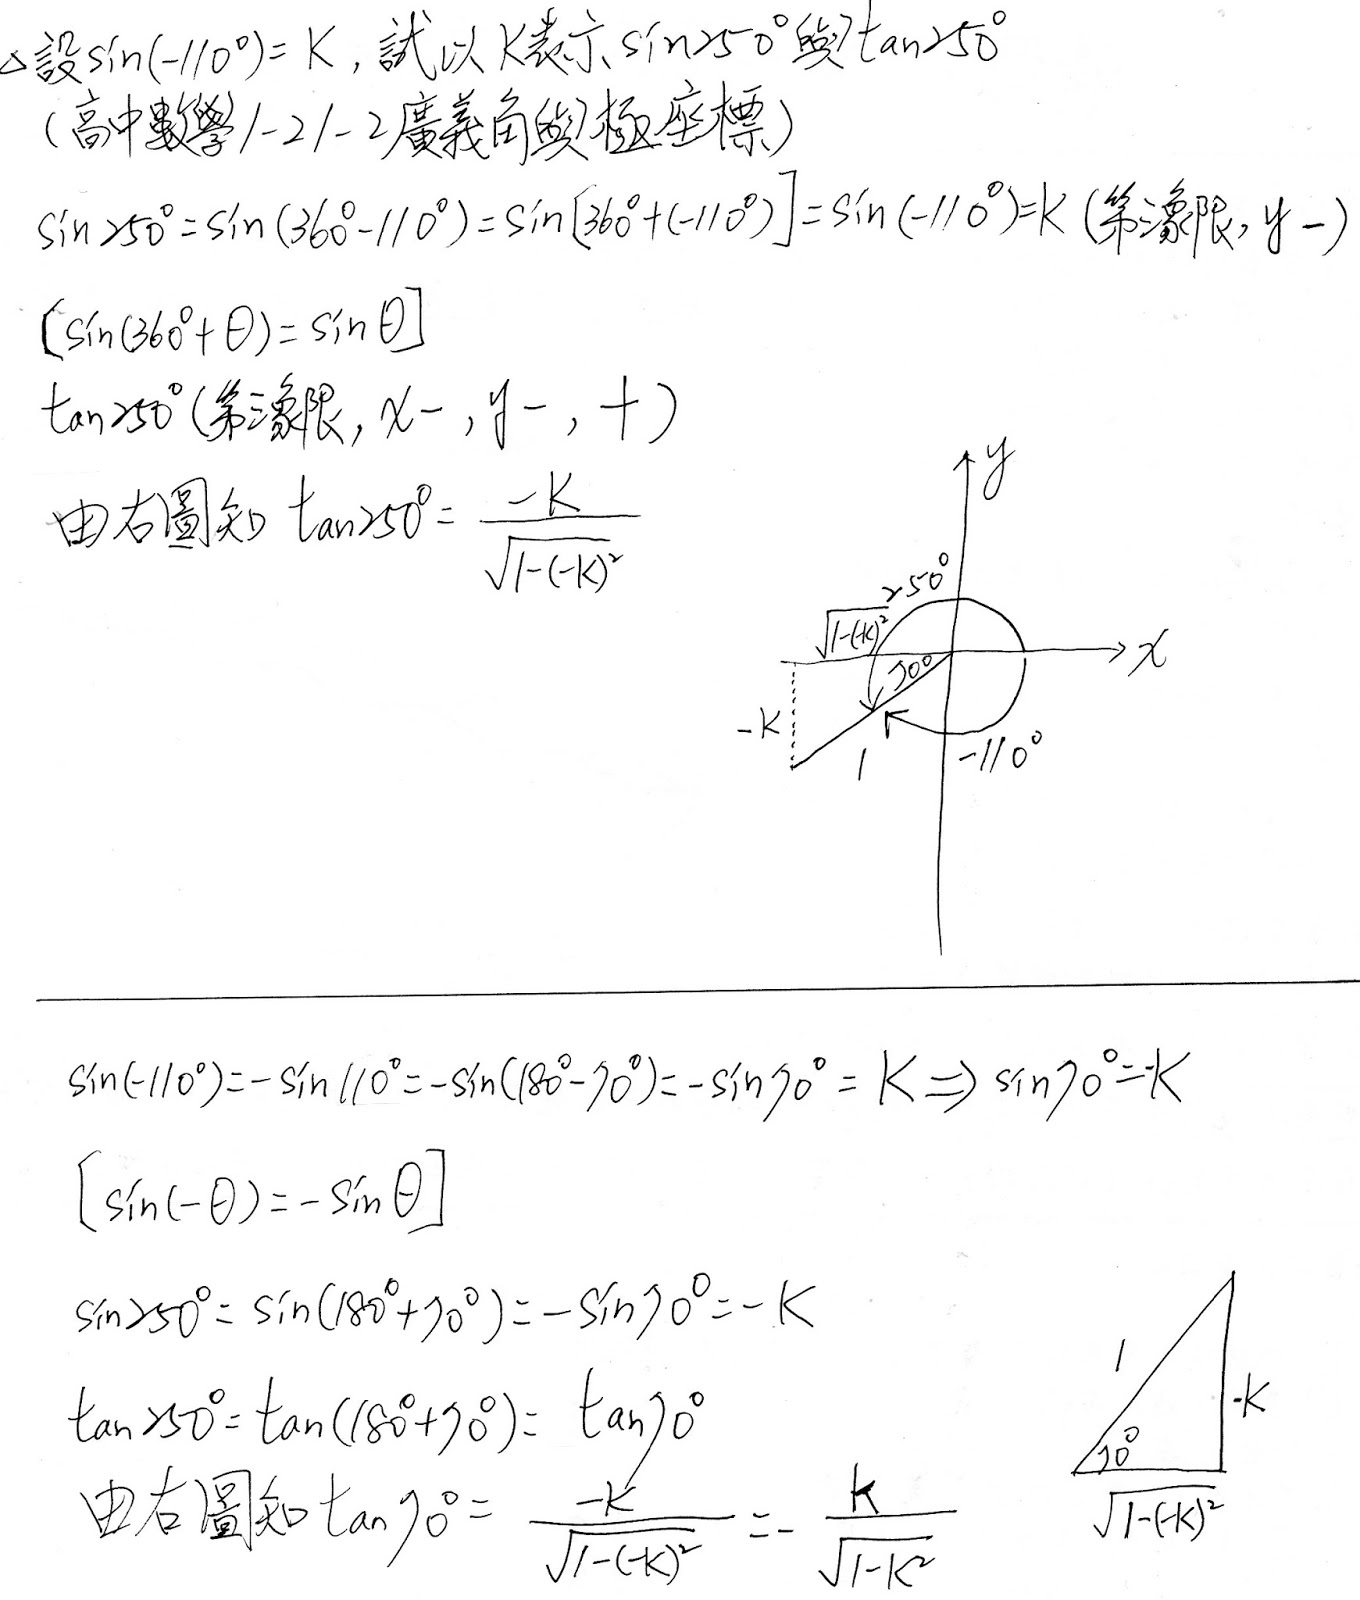 △設sin(-110°)=K,試以K表示sin250°與tan250°
(高中數學1-2 1-2廣義角與極座標)
sin250°=sin(360°-110°)=sin[360°+(-110°)]=sin(-110°)=K (第三象限, y -)
[sin(360°+θ)=sinθ]
tan250°(第三象限, x-, y-, +)
由右圖知 tan250°= -K/√1-(-K)²
y
250°
√1-(-K)²
70°
x
-K
1
-110°
sin(-110°)=-sin110°=-sin(180°-70°)=-sin70°=K⇒sin70°=-K
[sin(-θ)=-sinθ]
sin250°=sin(180°+70°)=-sin70°=-K
tan250°=tan(180°+70°)= tan70°
由右圖知 tan70°= -K/√1-(-K)² =- k/√1-K²
1
-K
70°
√1-(-K)²